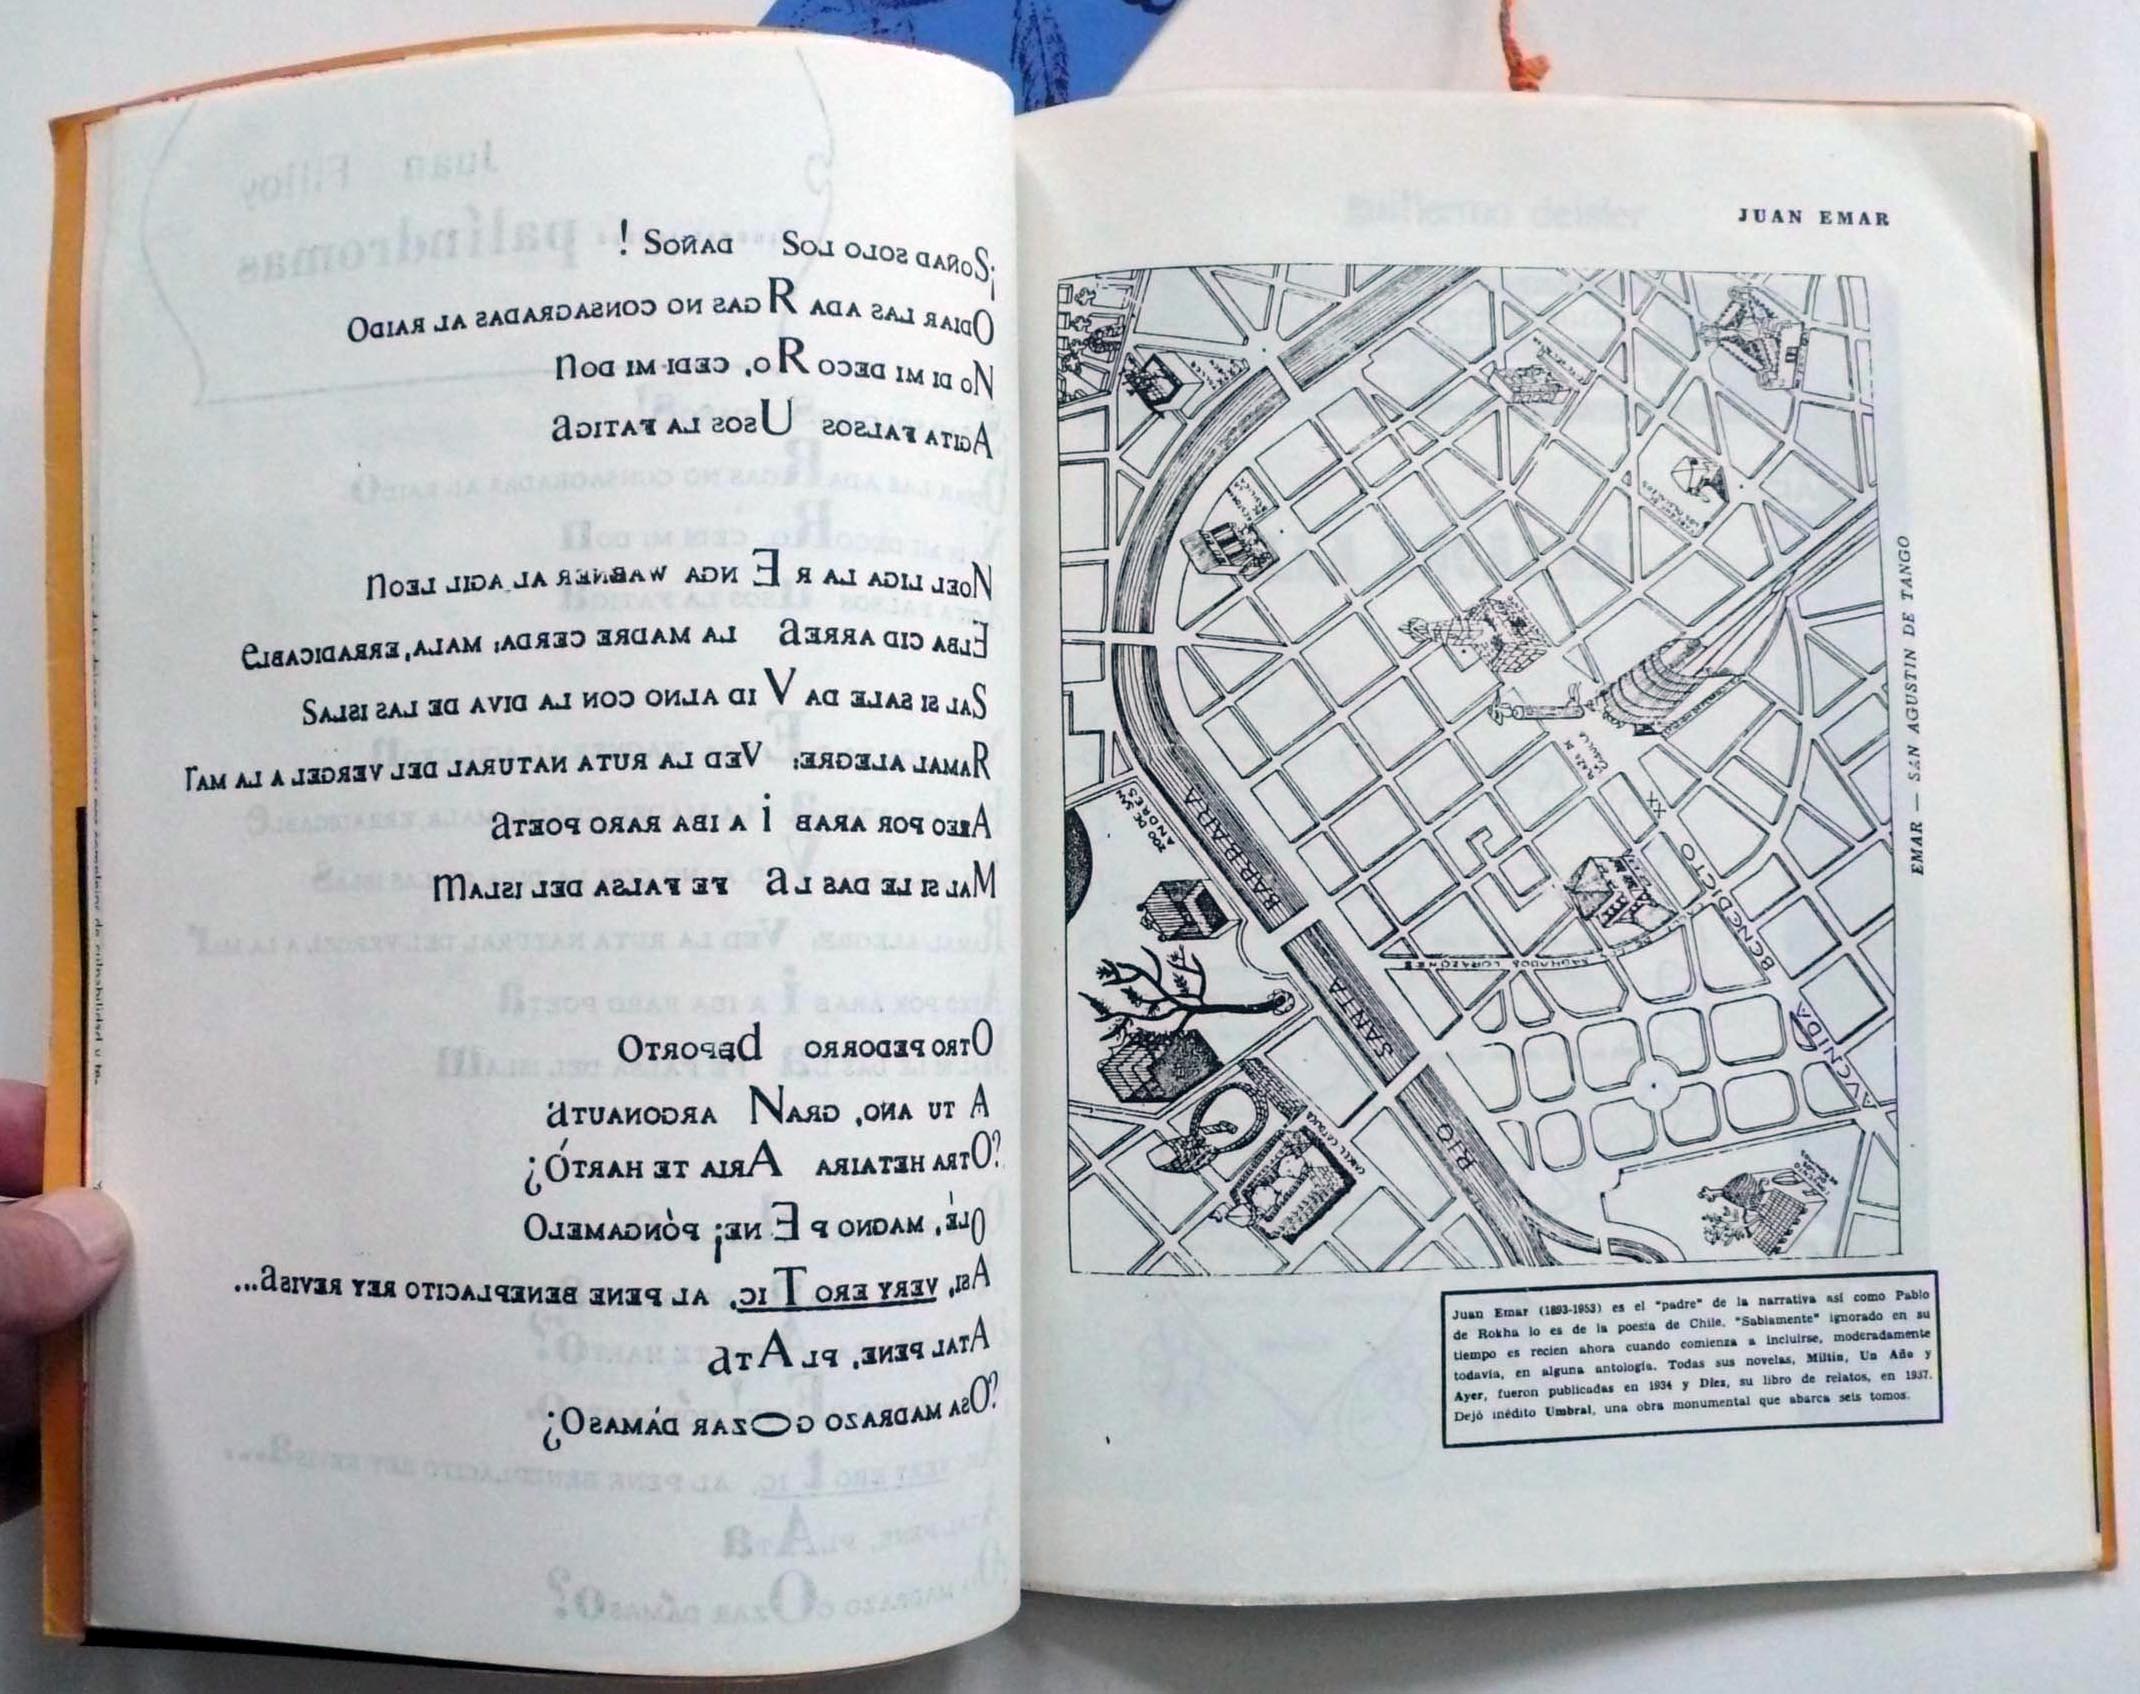 ¡Soñad solo loS dañoS !
Odiar las ada R gas no consagradas al raidO
No di mi deco R o, cedi mi doN
Agita falsos Usos la fatigA
Noel liga la r E nga wagner al agil leoN
Elba cid arreA la madre cerda; mala, erradicablE
Sal si sale da V id alno con la diva de las islaS
Ramal alegre: Ved la ruta natural del vergel a la maR
Ateo por arab i a iba raro poetA
Mal si le das lA fe falsa del islaM
Otro pedorro DeportO
A tu año, graN argonautA
?Otra hetaira Aria te hartÓ¿
Olé, magno p E ne; ¡póngamelO
Asi, very ero Tic, al pene beneplacito rey revisA...
Atal pene, pl AtA
?Osa madrazo g Ozar dámasO¿
Juan Filloy
palíndromas
JUAN EMAR
BARBARA
SANTA
RIO
ZOO DE SAN ANDRES
CARCEL CATOLICA
PLAZA DE LA CASULLA
SAGRADOS CORAZONES
AVENIDA
BENEDICTO
XX
EMAR — SAN AGUSTIN DE TANGO
Juan Emar (1893-1953) es el "padre" de la narrativa así como Pablo
de Rokha lo es de la poesía de Chile. "Sabiamente" ignorado en su
tiempo es recien ahora cuando comienza a incluirse, moderadamente
todavía, en alguna antología. Todas sus novelas, Miltín, Un Año y
Ayer, fueron publicadas en 1934 y Diez, su libro de relatos, en 1937.
Dejó inédito Umbral, una obra monumental que abarca seis tomos.